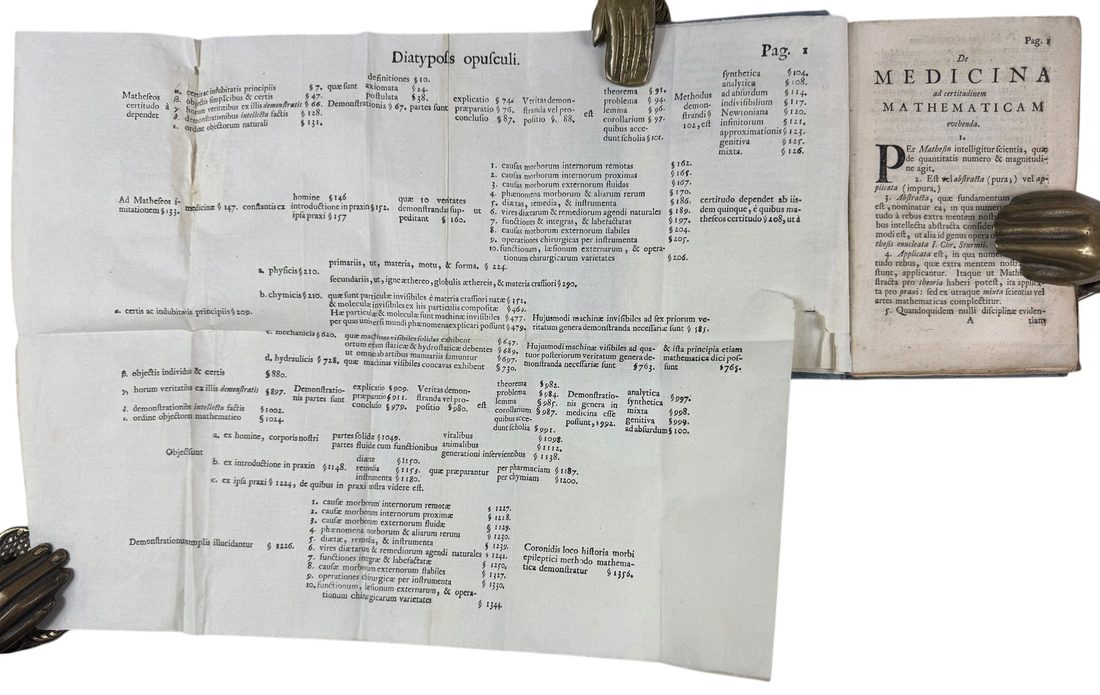 Diatyposs opusculi.
Pag. 1
Matheseos certitudo à dependet
α. certis ac indubitatis principiis § 7. quæ sunt
definitiones § 10.
axiomata § 14.
postulata § 38.
β. objectis simplicibus & certis § 47.
γ. horum veritatibus ex illis demonstratis § 66. Demonstrationis § 67. partes sunt
explicatio § 74.
præparatio § 76.
conclusio § 87.
Veritas demonstranda vel propositio §. 88. est
theorema § 91.
problema § 94.
lemma § 96.
corollarium § 97.
quibus accedunt scholia § 101.
Methodus demonstrandi § 102, est
synthetica § 104.
analytica § 108.
ad absurdum § 114.
indivisibilium § 117.
Newtoniana § 120.
infinitorum § 121.
approximationis § 123.
genitiva § 125.
mixta. § 126.
δ. demonstrationibus intellectu factis § 128.
ε. ordine objectorum naturali § 131.
Ad Matheseos imitationem § 133. medicinæ § 147. constantis ex
homine § 146
introductione in praxin § 152.
ipsa praxi § 157
quæ 10 veritates demonstrandas suppeditant § 160. ut
1. causas morborum internorum remotas § 162.
2. causas morborum internorum proximas § 165.
3. causas morborum externorum fluidas § 167.
4. phænomena morborum & aliarum rerum § 170.
5. diætas, remedia, & instrumenta § 186.
6. vires diætarum & remediorum agendi naturales § 189.
7. functiones & integras, & labefactatas § 197.
8. causas morborum externorum stabiles § 204.
9. operationes chirurgicas per instrumenta § 205.
10. functionum, læsionum externarum, & operationum chirurgicarum varietates § 206.
certitudo dependet ab iisdem quinque, è quibus matheseos certitudo § 208, ut à
α. certis ac indubitatis principiis § 209.
a. physicis § 210.
primariis, ut, materia, motu, & forma. § 224.
secundariis, ut, igne æthereo, globulis æthereis, & materia crassiori § 290.
b. chymicis § 210. quæ sunt particulæ invisibiles è materia crassiori natæ § 251.
& moleculæ invisibiles ex his particulis compositæ § 469.
Hæ particulæ & moleculæ sunt machinæ invisibiles § 477.
per quas universi mundi phænomena explicari possunt § 479.
Hujusmodi machinæ invisibiles ad sex priorum veritatum genera demonstranda necessariæ sunt § 585.
c. mechanicis § 620. quæ machinas visibiles solidas exhibent § 647.
ortum etiam staticæ & hydrostaticæ debentes § 689.
ut omne ab artibus manuariis sumuntur § 697.
d. hydraulicis § 728. quæ machinas visibiles concavas exhibent § 730.
Hujusmodi machinæ visibiles ad quatuor posteriorum veritatum genera demonstranda necessariæ sunt § 763.
& ista principia etiam mathematica dici possunt § 765.
β. objectis individuis & certis § 880.
γ. horum veritatibus ex illis demonstratis § 897. Demonstrationis partes sunt
explicatio § 909.
præparatio § 911.
conclusio § 979.
Veritas demonstranda vel propositio § 980. est
theorema § 982.
problema § 984.
lemma § 985.
corollarium § 987.
quibus accedunt scholia § 991.
Demonstrationis genera in medicina esse possunt, § 992.
analytica § 997.
synthetica
mixta § 998.
genitiva § 999.
ad absurdum § 100.
δ. demonstrationibus intellectu factis § 1002.
ε. ordine objectorum mathematico § 1024.
Objecta sunt
a. ex homine, corporis nostri
partes solidæ § 1049.
partes fluidæ cum functionibus
vitalibus § 1098.
animalibus § 1112.
generationi inservientibus § 1138.
b. ex introductione in praxin § 1148.
diætæ § 1150.
remedia § 1153.
instrumenta § 1180.
quæ præparantur
per pharmaciam § 1187.
per chymiam § 1200.
c. ex ipsa praxi § 1224, de quibus in praxi nostra videre est.
Demonstrationum exemplis illucidantur § 1226.
1. causæ morborum internorum remotæ § 1227.
2. causæ morborum internorum proximæ § 1218.
3. causæ morborum externorum fluidæ § 1229.
4. phænomena morborum & aliarum rerum § 1230.
5. diætæ, remedia, & instrumenta § 1239.
6. vires diætarum & remediorum agendi naturales § 1241.
7. functiones integræ & labefactatæ § 1250.
8. causæ morborum externorum stabiles § 1327.
9. operationes chirurgicæ per instrumenta § 1330.
10. functionum, læsionum externarum, & operationum chirurgicarum varietates § 1344
Coronidis loco historia morbi epileptici methodo mathematica demonstratur § 1356.
Pag. 1
De
MEDICINA
ad certitudinem
MATHEMATICAM
evehenda.
1.
PEr Mathesin intelligitur scientia, quæ
de quantitatis numero & magnitudine agit.
2. Est vel abstracta (pura;) vel applicata (impura.)
3. Abstracta, quæ fundamentum
est, nominatur ea, in qua numerus
tudo à rebus extra mentem nost
bus intellectu abstracta consider
modi est, ut alia id genus opera
thesis enucleata I. Cor. Sturmii.
4. Applicata est, in qua nume
tudo rebus, quæ extra mentem nostra
stunt, applicantur. Itaque ut Math
stracta pro theoria haberi potest, ita applica
ta pro praxi: sed ex utraque mixta scientias vel
artes mathematicas complectitur.
5. Quandoquidem nulli disciplinæ eviden-
A tiam